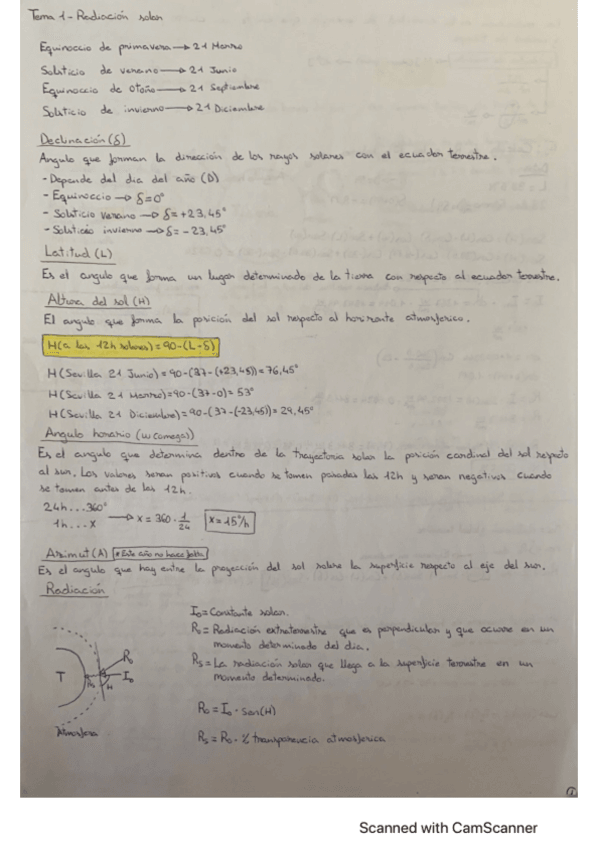 Tema 1 - Radiación solar
Equinoccio de primavera → 21 Marzo
Solsticio de verano → 21 Junio
Equinoccio de Otoño → 21 Septiembre
Solsticio de invierno → 21 Diciembre
Declinación (δ)
Angulo que forman la dirección de los rayos solares con el ecuador terrestre.
- Depende del dia del año (D)
- Equinoccio → δ = 0°
- Solsticio verano → δ = +23,45°
- Solsticio invierno → δ = -23,45°
Latitud (L)
Es el angulo que forma un lugar determinado de la tierra con respecto al ecuador terrestre.
Altura del sol (H)
El angulo que forma la posición del sol respecto al horizonte atmosferico.
H (a las 12h solares) = 90-(L-δ)
H (Sevilla 21 Junio) = 90-(37-(+23,45)) = 76,45°
H (Sevilla 21 Marzo) = 90-(37-0) = 53°
H (Sevilla 21 Diciembre) = 90-(37-(-23,45)) = 29,45°
Angulo horario (w (omega))
Es el angulo que determina dentro de la trayectoria solar la posición cardinal del sol respecto
al sur. Los valores seran positivos cuando se tomen pasadas las 12h y seran negativos cuando
se tomen antes de las 12h.
24h...360°
1h...x → x = 360 · 1/24 x = 15°/h
Azimut (A) *Este año no hace falta
Es el angulo que hay entre la proyección del sol sobre la superficie respecto al eje del sur.
Radiación
I₀ = Constante solar.
R₀ = Radiación extraterrestre que es perpendicular y que ocurre en un
momento determinado del dia.
Rs = La radiación solar que llega a la superficie terrestre en un
momento determinado.
R₀ = I₀ · sen(H)
Rs = R₀ · % transparencia atmosferica
T
R₀
I₀
H
Atmosfera
1
Scanned with CamScanner